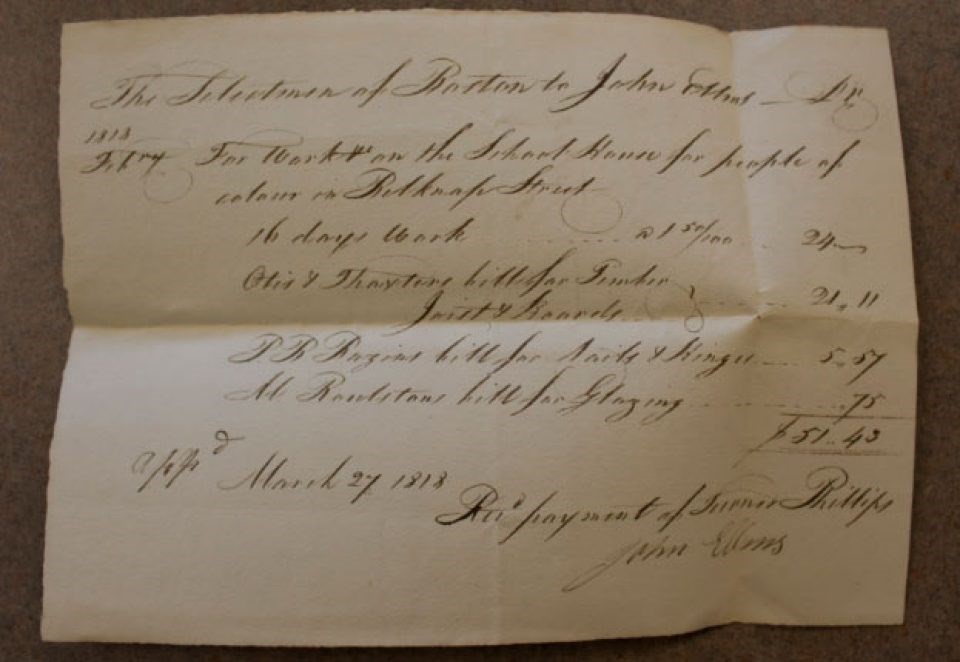 The Selectmen of Boston to John Ellms Dr
1818
Feby For Work &c on the School House for people of
colour in Belknap Street
16 days Work a 1 50/100 24
Otis & Thaxters bill for Timber
Joist & Boards 21.11
P R bill for Nails & Hinges 5.57
M bill for Glazing .75
$51.43
appd
March 27 1818
Recd payment of Turner Phillips
John Ellms